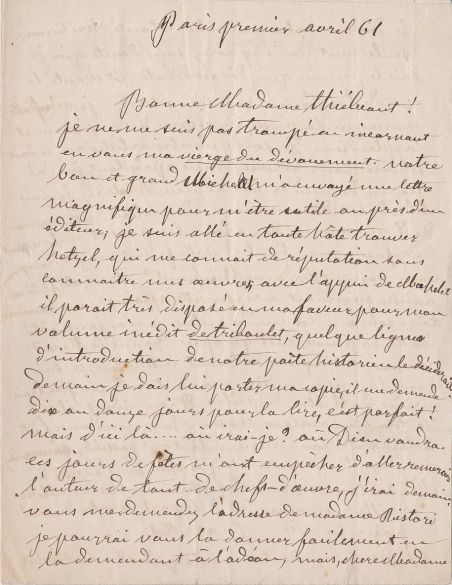 Paris premier avril 61
Bonne Madame Thiébeant!
je ne me suis pas trompé en incarnant
en vous ma vierge du dévouement. notre
bon et grand Michelet m'a envoyé une lettre
magnifique pour m'être utile auprès d'un
éditeur, je suis allé en toute hâte trouver
hetzel, qui me connait de réputation sans
connaitre mes œuvres, avec l'appui de Michelet
il parait très disposé en ma faveur pour mon
volume inédit de triboulet, quelque lignes
d'introduction de notre poëte historien le déciderait
demain je dois lui porter ma copie, il me demande
dix ou douze jours pour la lire, c'est parfait!
mais d'ici là.... où irai-je? où Dieu voudra.
ces jours de fêtes m'ont empêcher d'aller remercier
l'auteur de tant de chefs-d'œuvre, j'irai demain.
vous me demandez l'adresse de madame Ristori
je pourrai vous la donner facilement en
la demandant à l'odéon, mais, chere Madame